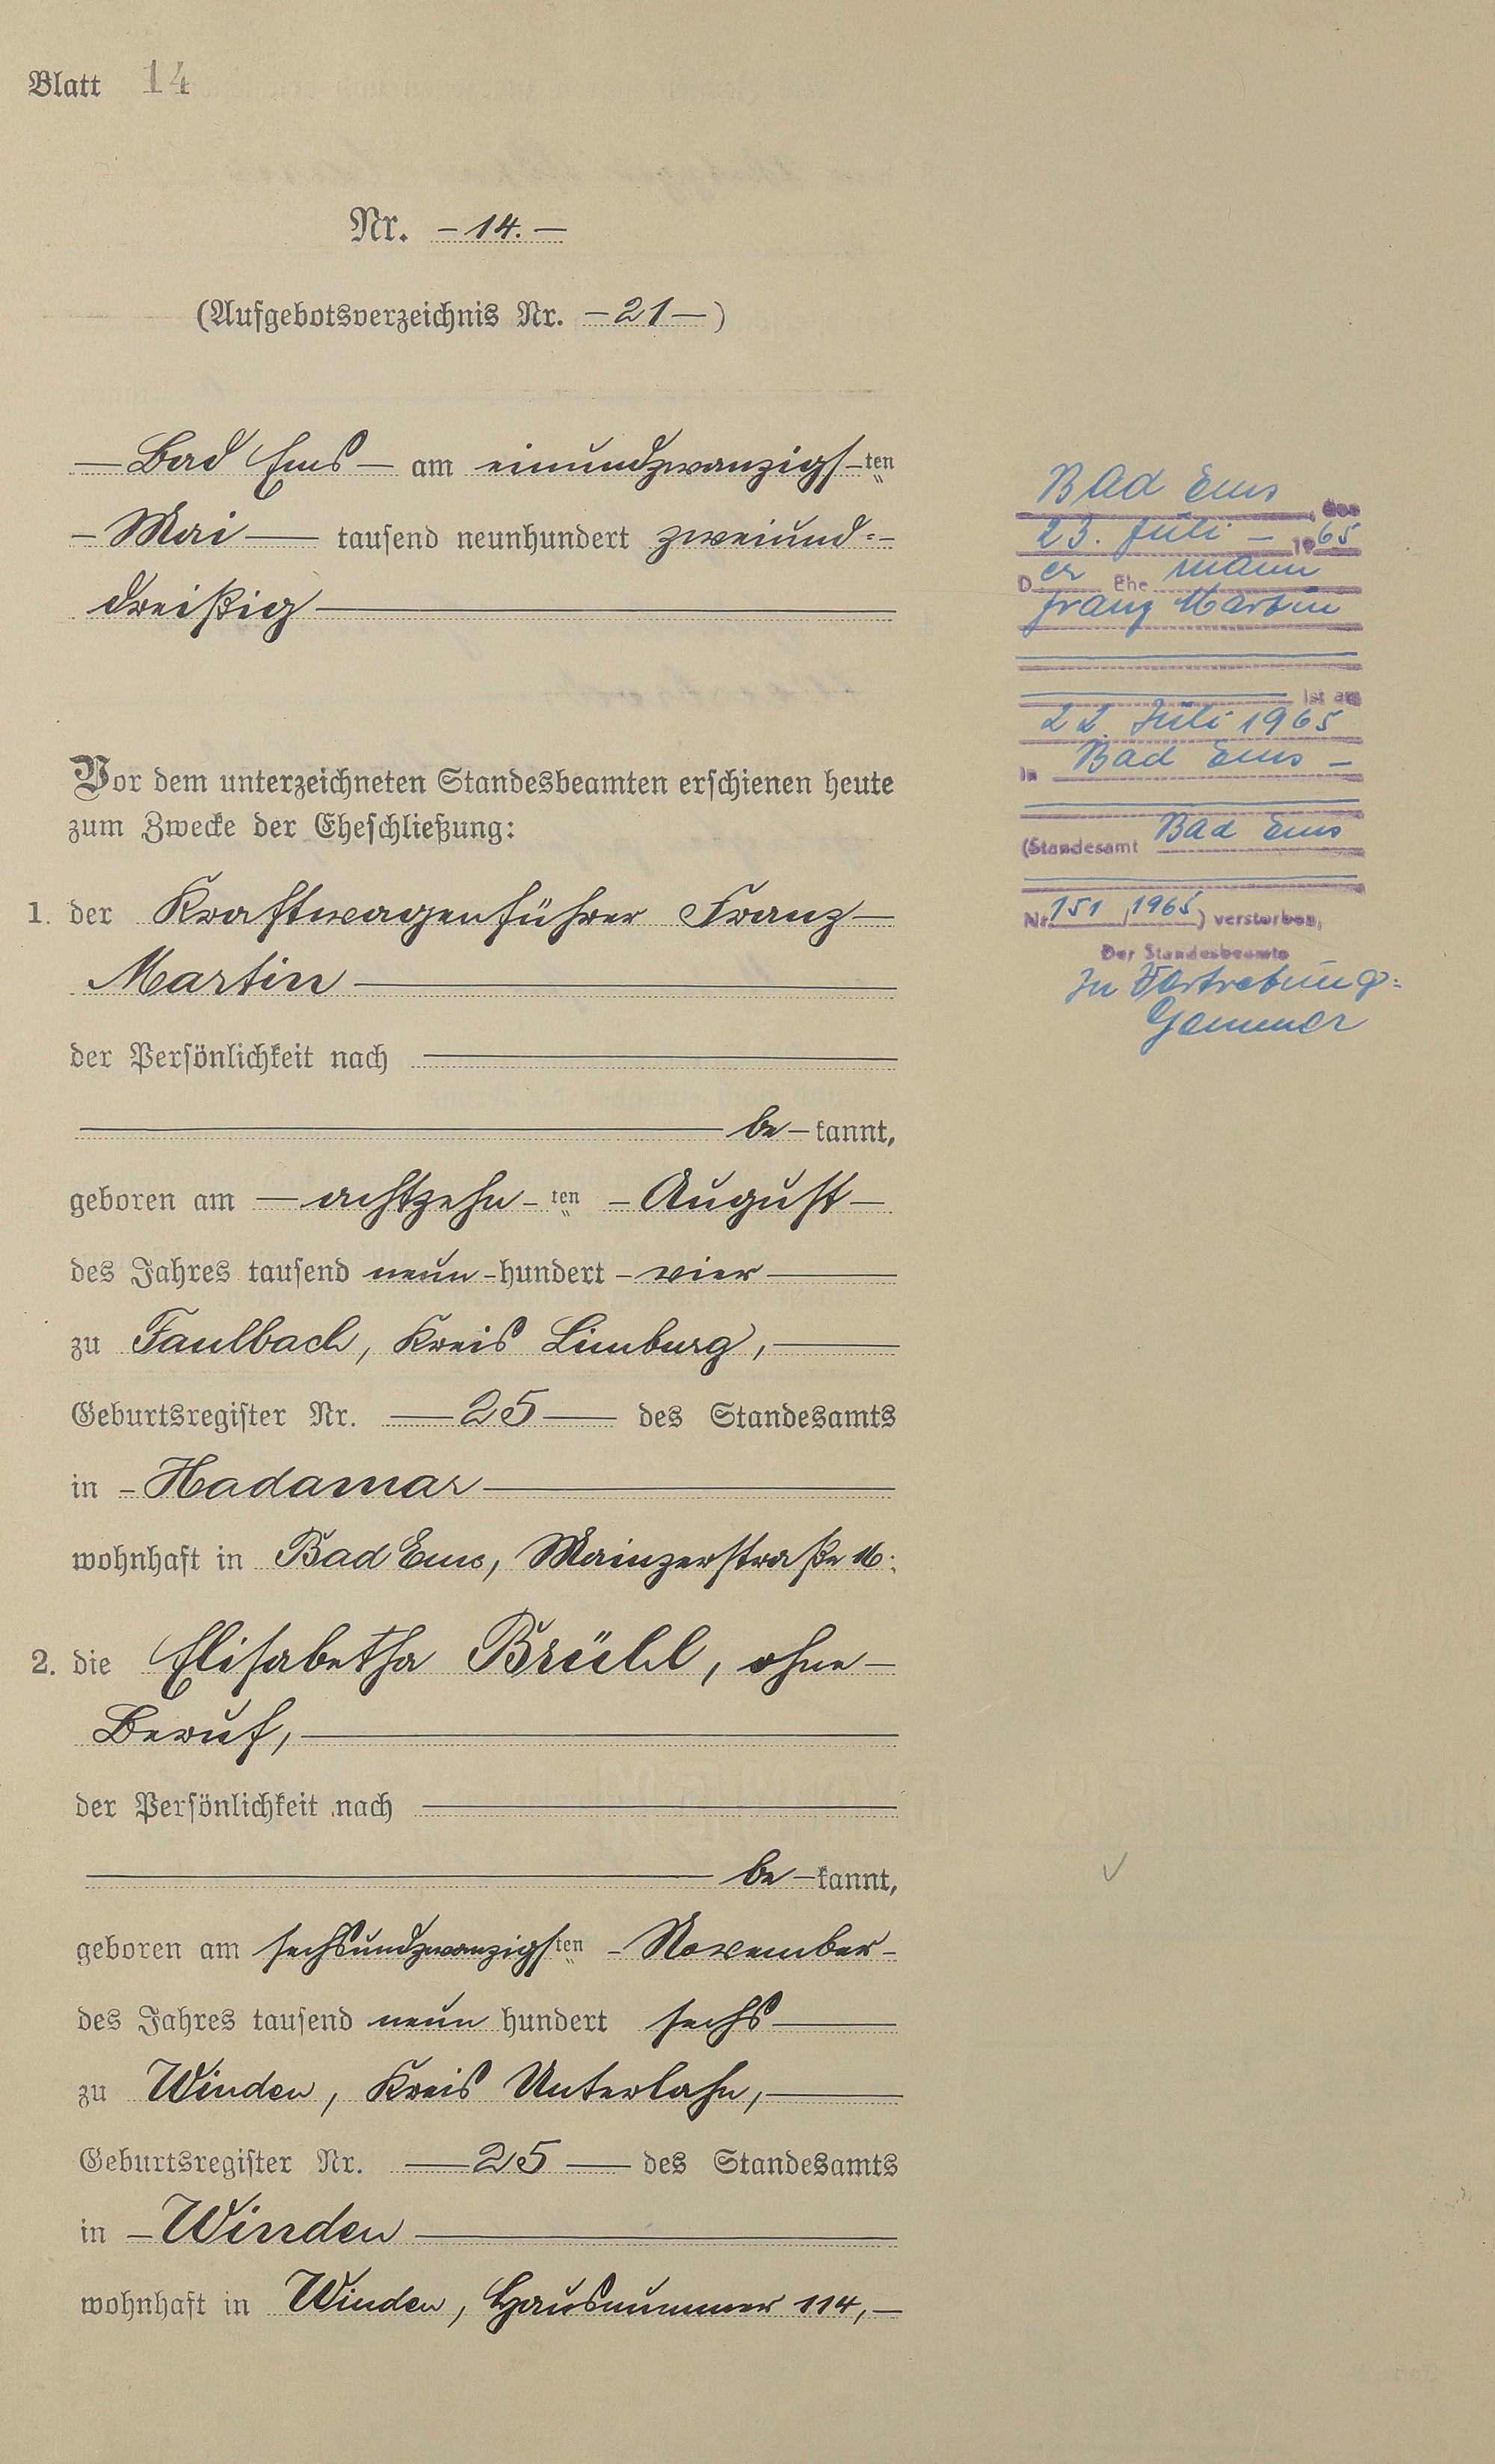 Blatt 14
Nr. – 14. –
(Aufgebotsverzeichnis Nr. – 21 –)
– Bad Ems – am einundzwanzigs-ten
– Mai – tausend neunhundert zweiund=-
dreißig
Vor dem unterzeichneten Standesbeamten erschienen heute
zum Zwecke der Eheschließung:
1. der Kraftwagenführer Franz
Martin
der Persönlichkeit nach
be – kannt,
geboren am – achtzehn – ten – August –
des Jahres tausend neun – hundert – vier
zu Faulbach, Kreis Limburg,
Geburtsregister Nr. – 25 – des Standesamts
in – Hadamar
wohnhaft in Bad Ems, Mainzerstraße 16.
2. die Elisabetha Brühl, ohne –
Beruf,
der Persönlichkeit nach
be – kannt,
geboren am sechsundzwanzigsten – November –
des Jahres tausend neun hundert sechs
zu Winden, Kreis Unterlahn,
Geburtsregister Nr. – 25 – des Standesamts
in – Winden
wohnhaft in Winden, Hausnummer 114, –
Bad Ems, den
23. Juli – 1965
Der Ehe mann
Franz Martin
ist am
22. Juli 1965
in Bad Ems –
(Standesamt Bad Ems
Nr. 151 / 1965) verstorben,
Der Standesbeamte
In Vertretung: